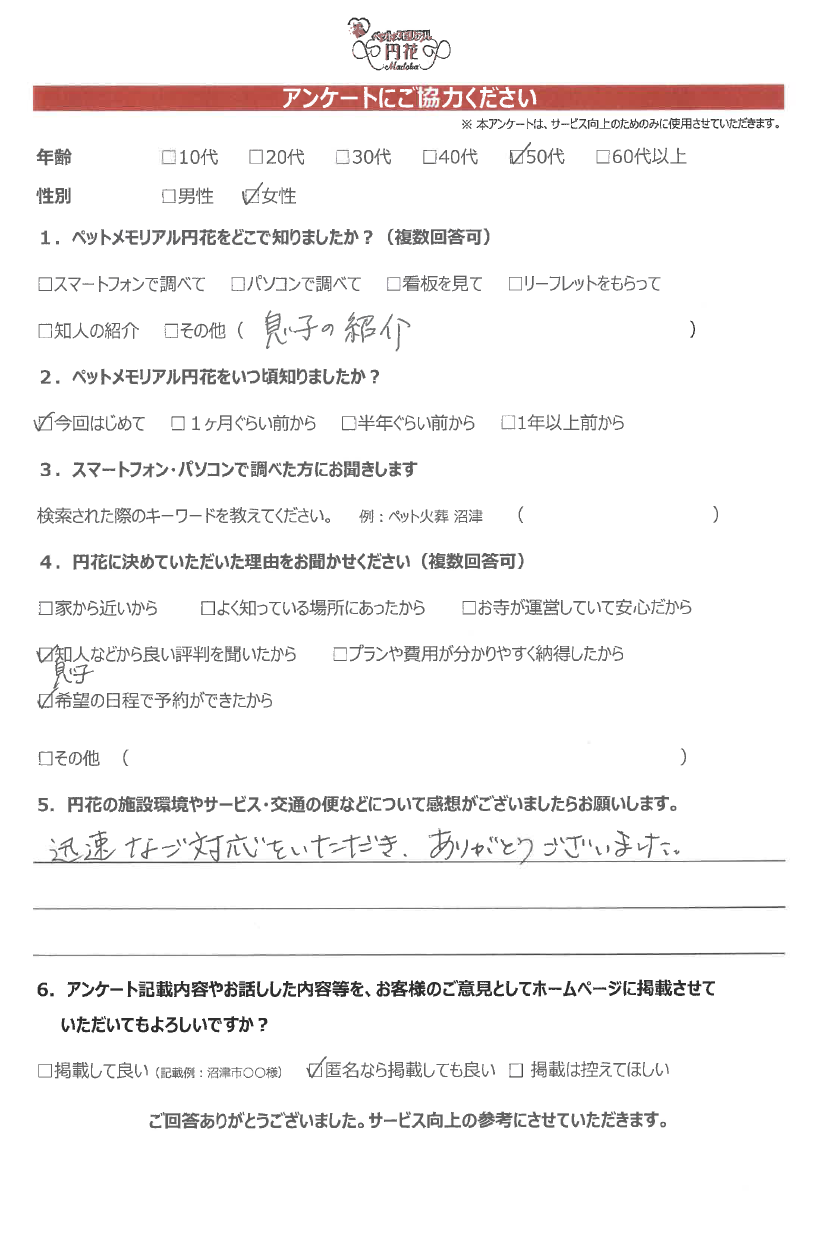 ペットメモリアル
円花
Madoka
アンケートにご協力ください
※ 本アンケートは、サービス向上のためのみに使用させていただきます。
年齢 □10代 □20代 □30代 □40代 ☑50代 □60代以上
性別 □男性 ☑女性
1．ペットメモリアル円花をどこで知りましたか？（複数回答可）
□スマートフォンで調べて □パソコンで調べて □看板を見て □リーフレットをもらって
□知人の紹介 □その他（ 息子の紹介 ）
2．ペットメモリアル円花をいつ頃知りましたか？
☑今回はじめて □１ヶ月ぐらい前から □半年ぐらい前から □1年以上前から
3．スマートフォン・パソコンで調べた方にお聞きします
検索された際のキーワードを教えてください。 例：ペット火葬 沼津 （ ）
4．円花に決めていただいた理由をお聞かせください（複数回答可）
□家から近いから □よく知っている場所にあったから □お寺が運営していて安心だから
☑知人などから良い評判を聞いたから □プランや費用が分かりやすく納得したから
息子
☑希望の日程で予約ができたから
□その他 （ ）
5．円花の施設環境やサービス・交通の便などについて感想がございましたらお願いします。
迅速なご対応をいただき、ありがとうございました。
6．アンケート記載内容やお話しした内容等を、お客様のご意見としてホームページに掲載させて
いただいてもよろしいですか？
□掲載して良い（記載例：沼津市〇〇様） ☑匿名なら掲載しても良い □ 掲載は控えてほしい
ご回答ありがとうございました。サービス向上の参考にさせていただきます。